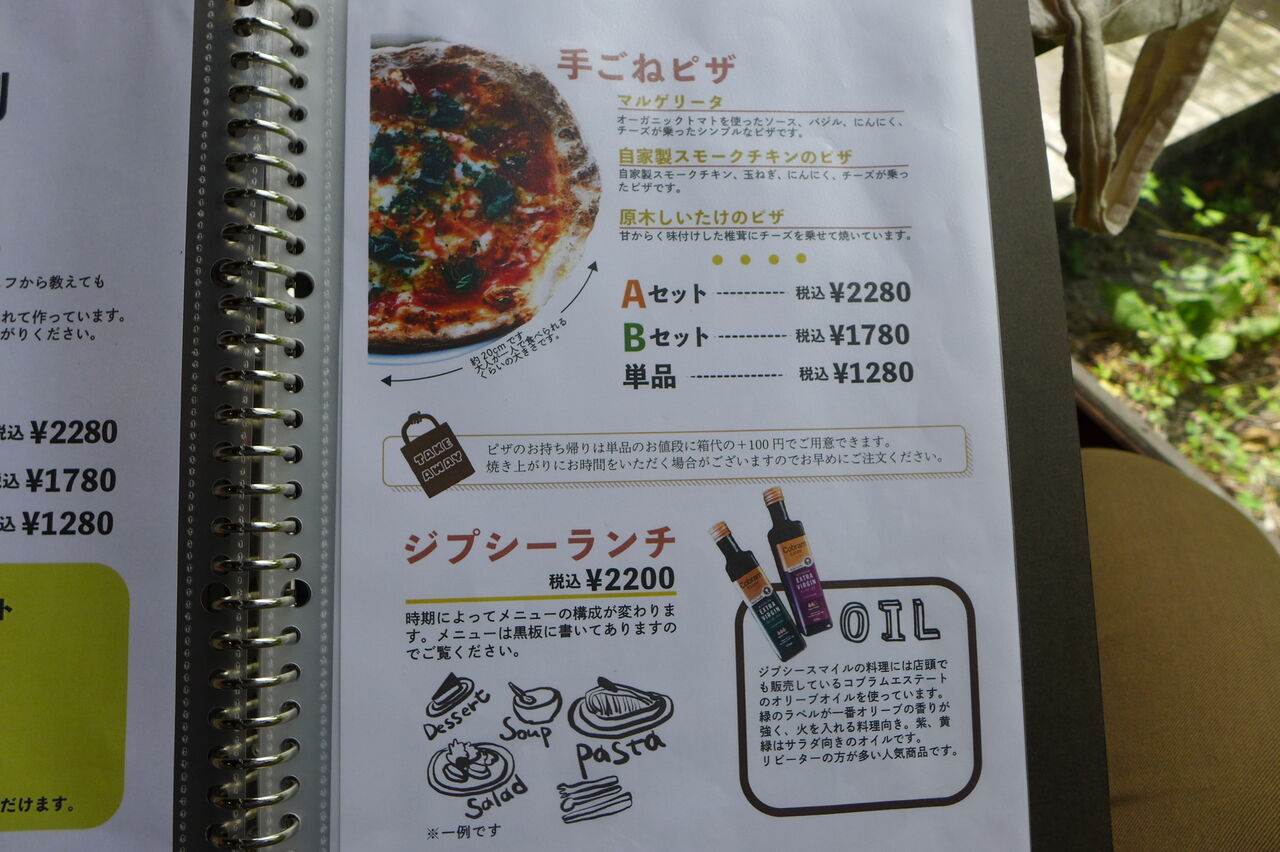 フから教えても
れて作っています。
がりください。
税込 ¥2280
込 ¥1780
込 ¥1280
ト
だけます。
手ごねピザ
マルゲリータ
オーガニックトマトを使ったソース、バジル、にんにく、
チーズが乗ったシンプルなピザです。
自家製スモークチキンのピザ
自家製スモークチキン、玉ねぎ、にんにく、チーズが乗っ
たピザです。
原木しいたけのピザ
甘からく味付けした椎茸にチーズを乗せて焼いています。
約20cmです
大人が一人で食べられる
くらいの大きさです。
Aセット 税込 ¥2280
Bセット 税込 ¥1780
単品 税込 ¥1280
TAKE
AWAY
ピザのお持ち帰りは単品のお値段に箱代の+100円でご用意できます。
焼き上がりにお時間をいただく場合がございますのでお早めにご注文ください。
ジプシーランチ
税込 ¥2200
時期によってメニューの構成が変わりま
す。メニューは黒板に書いてありますの
でご覧ください。
Dessert
Soup
pasta
Salad
※一例です
Cobram
EXTRA
VIRGIN
Cobram
EXTRA
VIRGIN
OIL
ジプシースマイルの料理には店頭で
も販売しているコブラムエステート
のオリーブオイルを使っています。
緑のラベルが一番オリーブの香りが
強く、火を入れる料理向き。紫、黄
緑はサラダ向きのオイルです。
リピーターの方が多い人気商品です。